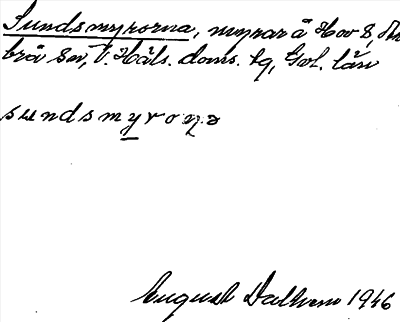 Sundsmyrorna, myrar å Hov 8,
brå sn, V. Häls. doms. tg, Gvl. län
sundsmyrona
August Dalhem 1946